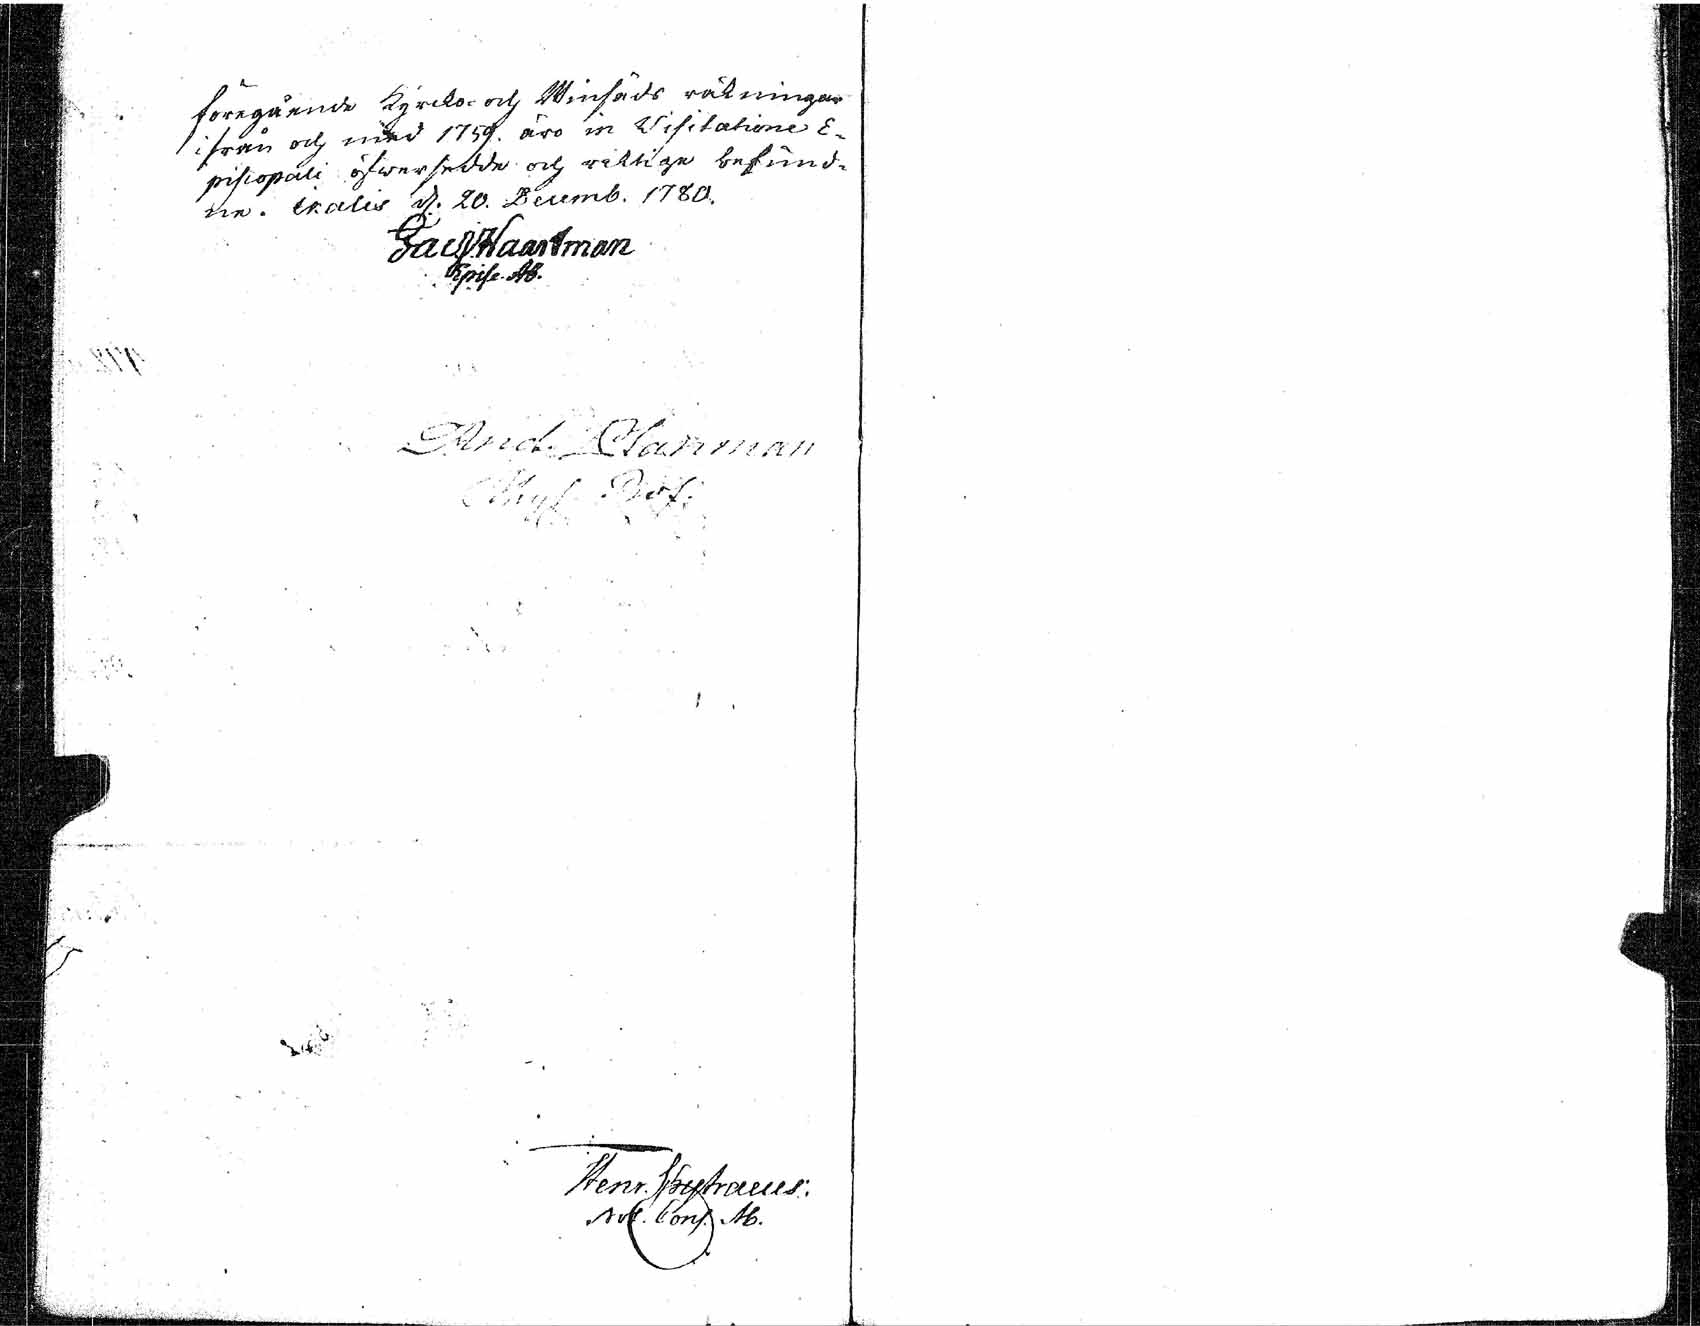 föregående Kyrcko- och Winsäds räkningar
ifrån och med 1759. äro in Visitatione E-
piscopali öfwersedde och riktige befund-
ne. d. 20. Decemb. 1780.
Jac. Haartman
Episc. Ab.
And. Planman
Phys. Prof.
Henr.
Not. Cons. Ab.